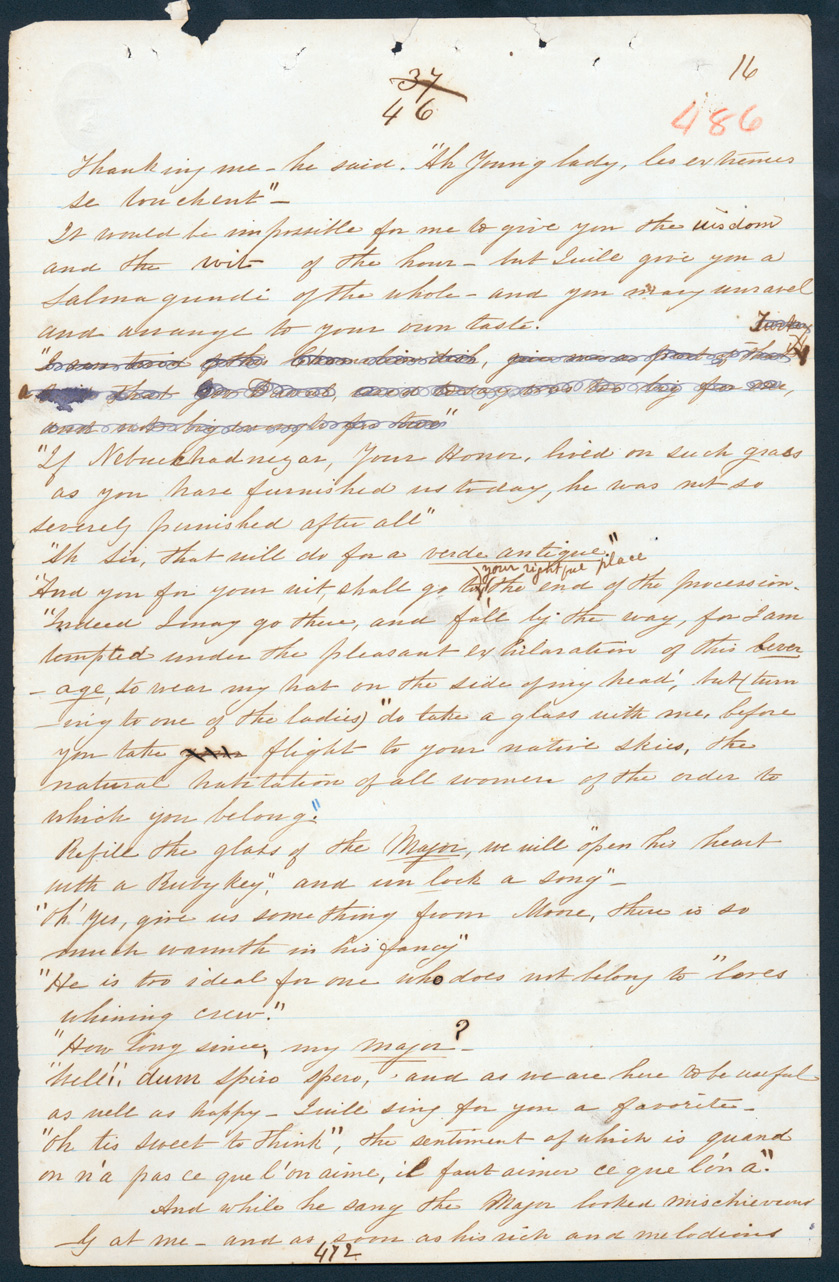 37
46
16
486
thanking me - he said. "Ah Young lady, les extremes
se touchent" -
It would be impossible for me to give you the wisdom
and the wit of the hour - but I will give you a
Salmagundi of the whole - and you may unravel
and arrange to your own taste.
"If Nebuchadnezar, Your Honor, lived on such grass
as you have furnished us today, he was not so
severely punished after all"
"Ah Sir, that will do for a verde antique."
your rightful place
"And you for your wit, shall go to the end of the procession.
"Indeed I may go there, and fall by the way, for I am
tempted under the pleasant exhilaration of this bever
-age, to wear my hat on the side of my head', but (turn
-ing to one of the ladies) "do take a glass with me, before
you take flight to your native skies, the
natural habitation of all women of the order to
which you belong."
Refill the glass of the Major, we will "open his heart
with a Ruby key", and unlock a song" -
"Oh! Yes, give us something from Moore, there is so
much warmth in his fancy"
"He is too ideal for one who does not belong to "loves
whining crew."
"How long since, my major? -
"Well! dum spiro spero, and as we are here to be useful
as well as happy - I will sing for you a favorite -
"Oh tis sweet to think", the sentiment of which is quand
on n'a pas ce que l'on aime, il faut aimer ce que l'on a".
And while he sang the Major looked mischievous
-ly at me - and as soon as his rich and melodious
472